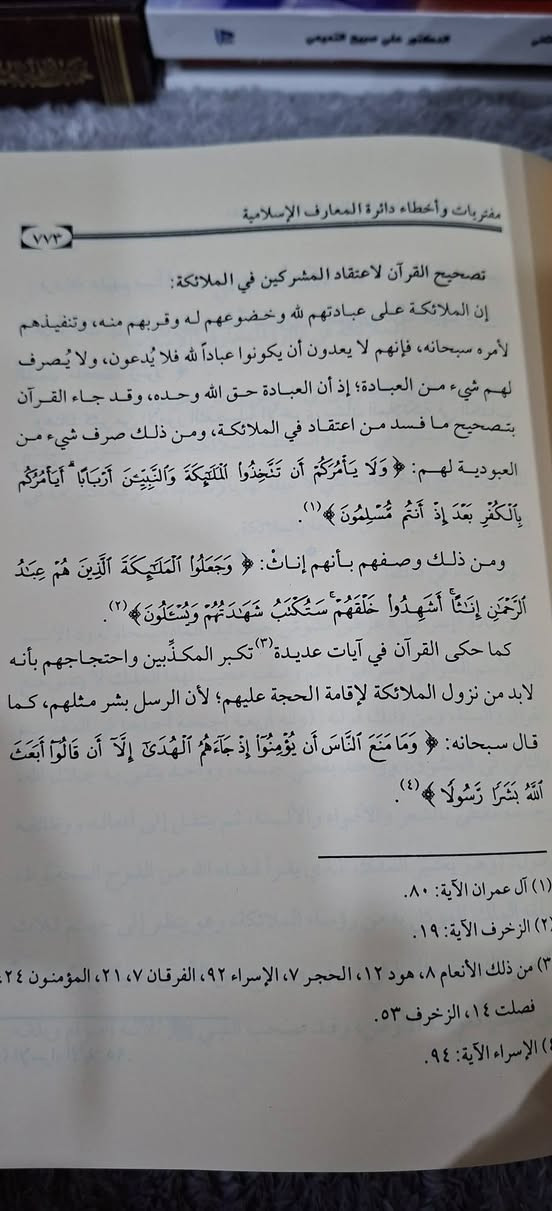 الدكتور علي سميح النعيمي
مفتريات وأخطاء دائرة المعارف الإسلامية
٧٧٣
تصحيح القرآن لاعتقاد المشركين في الملائكة:
إن الملائكة على عبادتهم لله وخضوعهم له وقربهم منه، وتنفيذهم
لأمره سبحانه، فإنهم لا يعدون أن يكونوا عباداً لله فلا يُدعون، ولا يُصرف
لهم شيء من العبادة؛ إذ أن العبادة حق الله وحده، وقد جاء القرآن
بتصحيح ما فسد من اعتقاد في الملائكة، ومن ذلك صرف شيء من
العبودية لهم: ﴿ وَلَا يَأْمُرَكُمْ أَن تَتَّخِذُوا۟ ٱلْمَلَـٰٓئِكَةَ وَٱلنَّبِيِّـۧنَ أَرْبَابًا ۗ أَيَأْمُرُكُم
بِٱلْكُفْرِ بَعْدَ إِذْ أَنتُم مُّسْلِمُونَ ﴾(١).
ومن ذلك وصفهم بأنهم إناثْ: ﴿ وَجَعَلُوا۟ ٱلْمَلَـٰٓئِكَةَ ٱلَّذِينَ هُمْ عِبَـٰدُ
ٱلرَّحْمَـٰنِ إِنَـٰثًا ۚ أَشَهِدُوا۟ خَلْقَهُمْ ۚ سَتُكْتَبُ شَهَـٰدَتُهُمْ وَيُسْـَٔلُونَ ﴾(٢).
كما حكى القرآن في آيات عديدة(٣) تكبر المكذِّبين واحتجاجهم بأنه
لابد من نزول الملائكة لإقامة الحجة عليهم؛ لأن الرسل بشر مثلهم، كما
قال سبحانه: ﴿ وَمَا مَنَعَ ٱلنَّاسَ أَن يُؤْمِنُوٓا۟ إِذْ جَآءَهُمُ ٱلْهُدَىٰٓ إِلَّآ أَن قَالُوٓا۟ أَبَعَثَ
ٱللَّهُ بَشَرًا رَّسُولًا ﴾(٤).
(١) آل عمران الآية: ٨٠.
(٢) الزخرف الآية: ١٩.
٣) من ذلك الأنعام ٨، هود ١٢، الحجر ٧، الإسراء ٩٢، الفرقان ٧، ٢١، المؤمنون ٢٤،
فصلت ١٤، الزخرف ٥٣.
٤) الإسراء الآية: ٩٤.